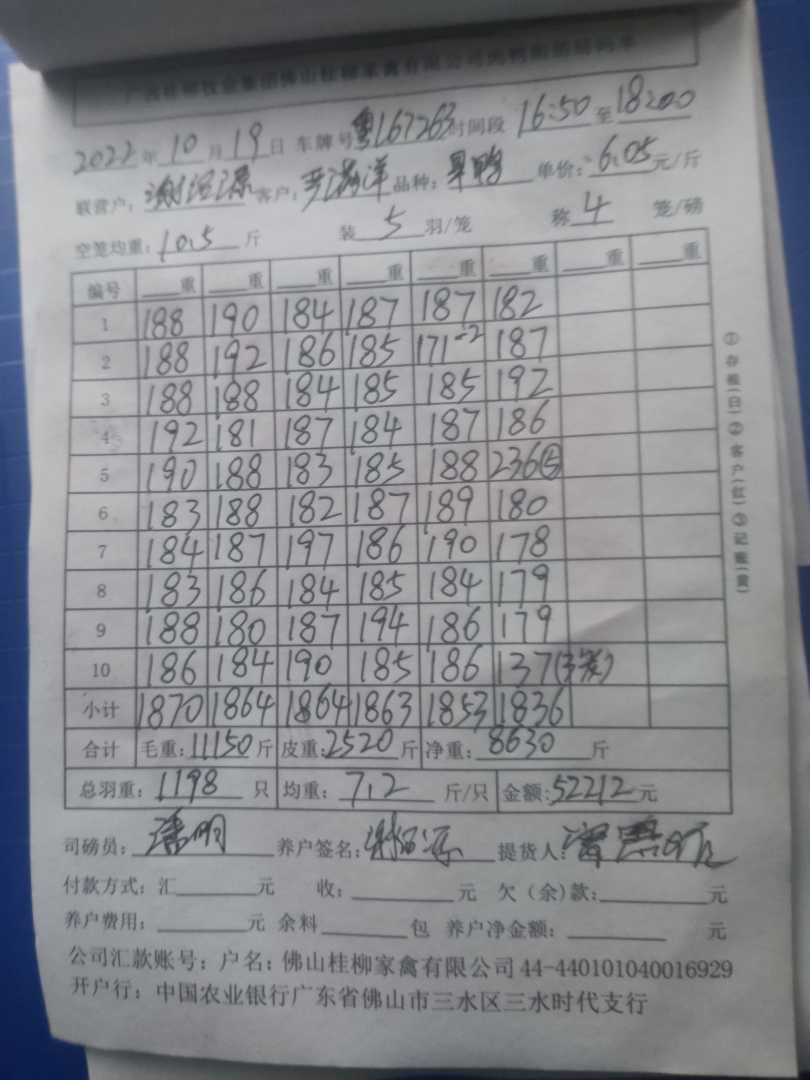 佛山桂柳家禽有限公司
2022年10月19日 车牌号粤167263时间段16:50至18:00
联营户: 客户: 品种: 单价:6.05元/斤
空笼均重:10.5斤 装5羽/笼 称4笼/磅
编号 重 重 重 重 重 重 重 重
1 188 190 184 187 187 182
2 188 192 186 185 171-2 187
3 188 188 184 185 185 192
4 192 181 187 184 187 186
5 190 188 183 185 188 236⑤
6 183 188 182 187 189 180
7 184 187 197 186 190 178
8 183 186 184 185 184 179
9 188 180 187 194 186 179
10 186 184 190 185 186 137(3笼)
小计 1870 1864 1864 1863 1853 1836
合计 毛重:11150斤 皮重:2520斤 净重:8630斤
总羽重:1198只 均重:7.2斤/只 金额:52212元
司磅员:潘明 养户签名: 提货人:
付款方式:汇 元 收: 元 欠(余)款: 元
养户费用: 元 余料 包 养户净金额: 元
公司汇款账号:户名:佛山桂柳家禽有限公司44-440101040016929
开户行:中国农业银行广东省佛山市三水区三水时代支行
①存根(白)②客户(红)③记账(黄)